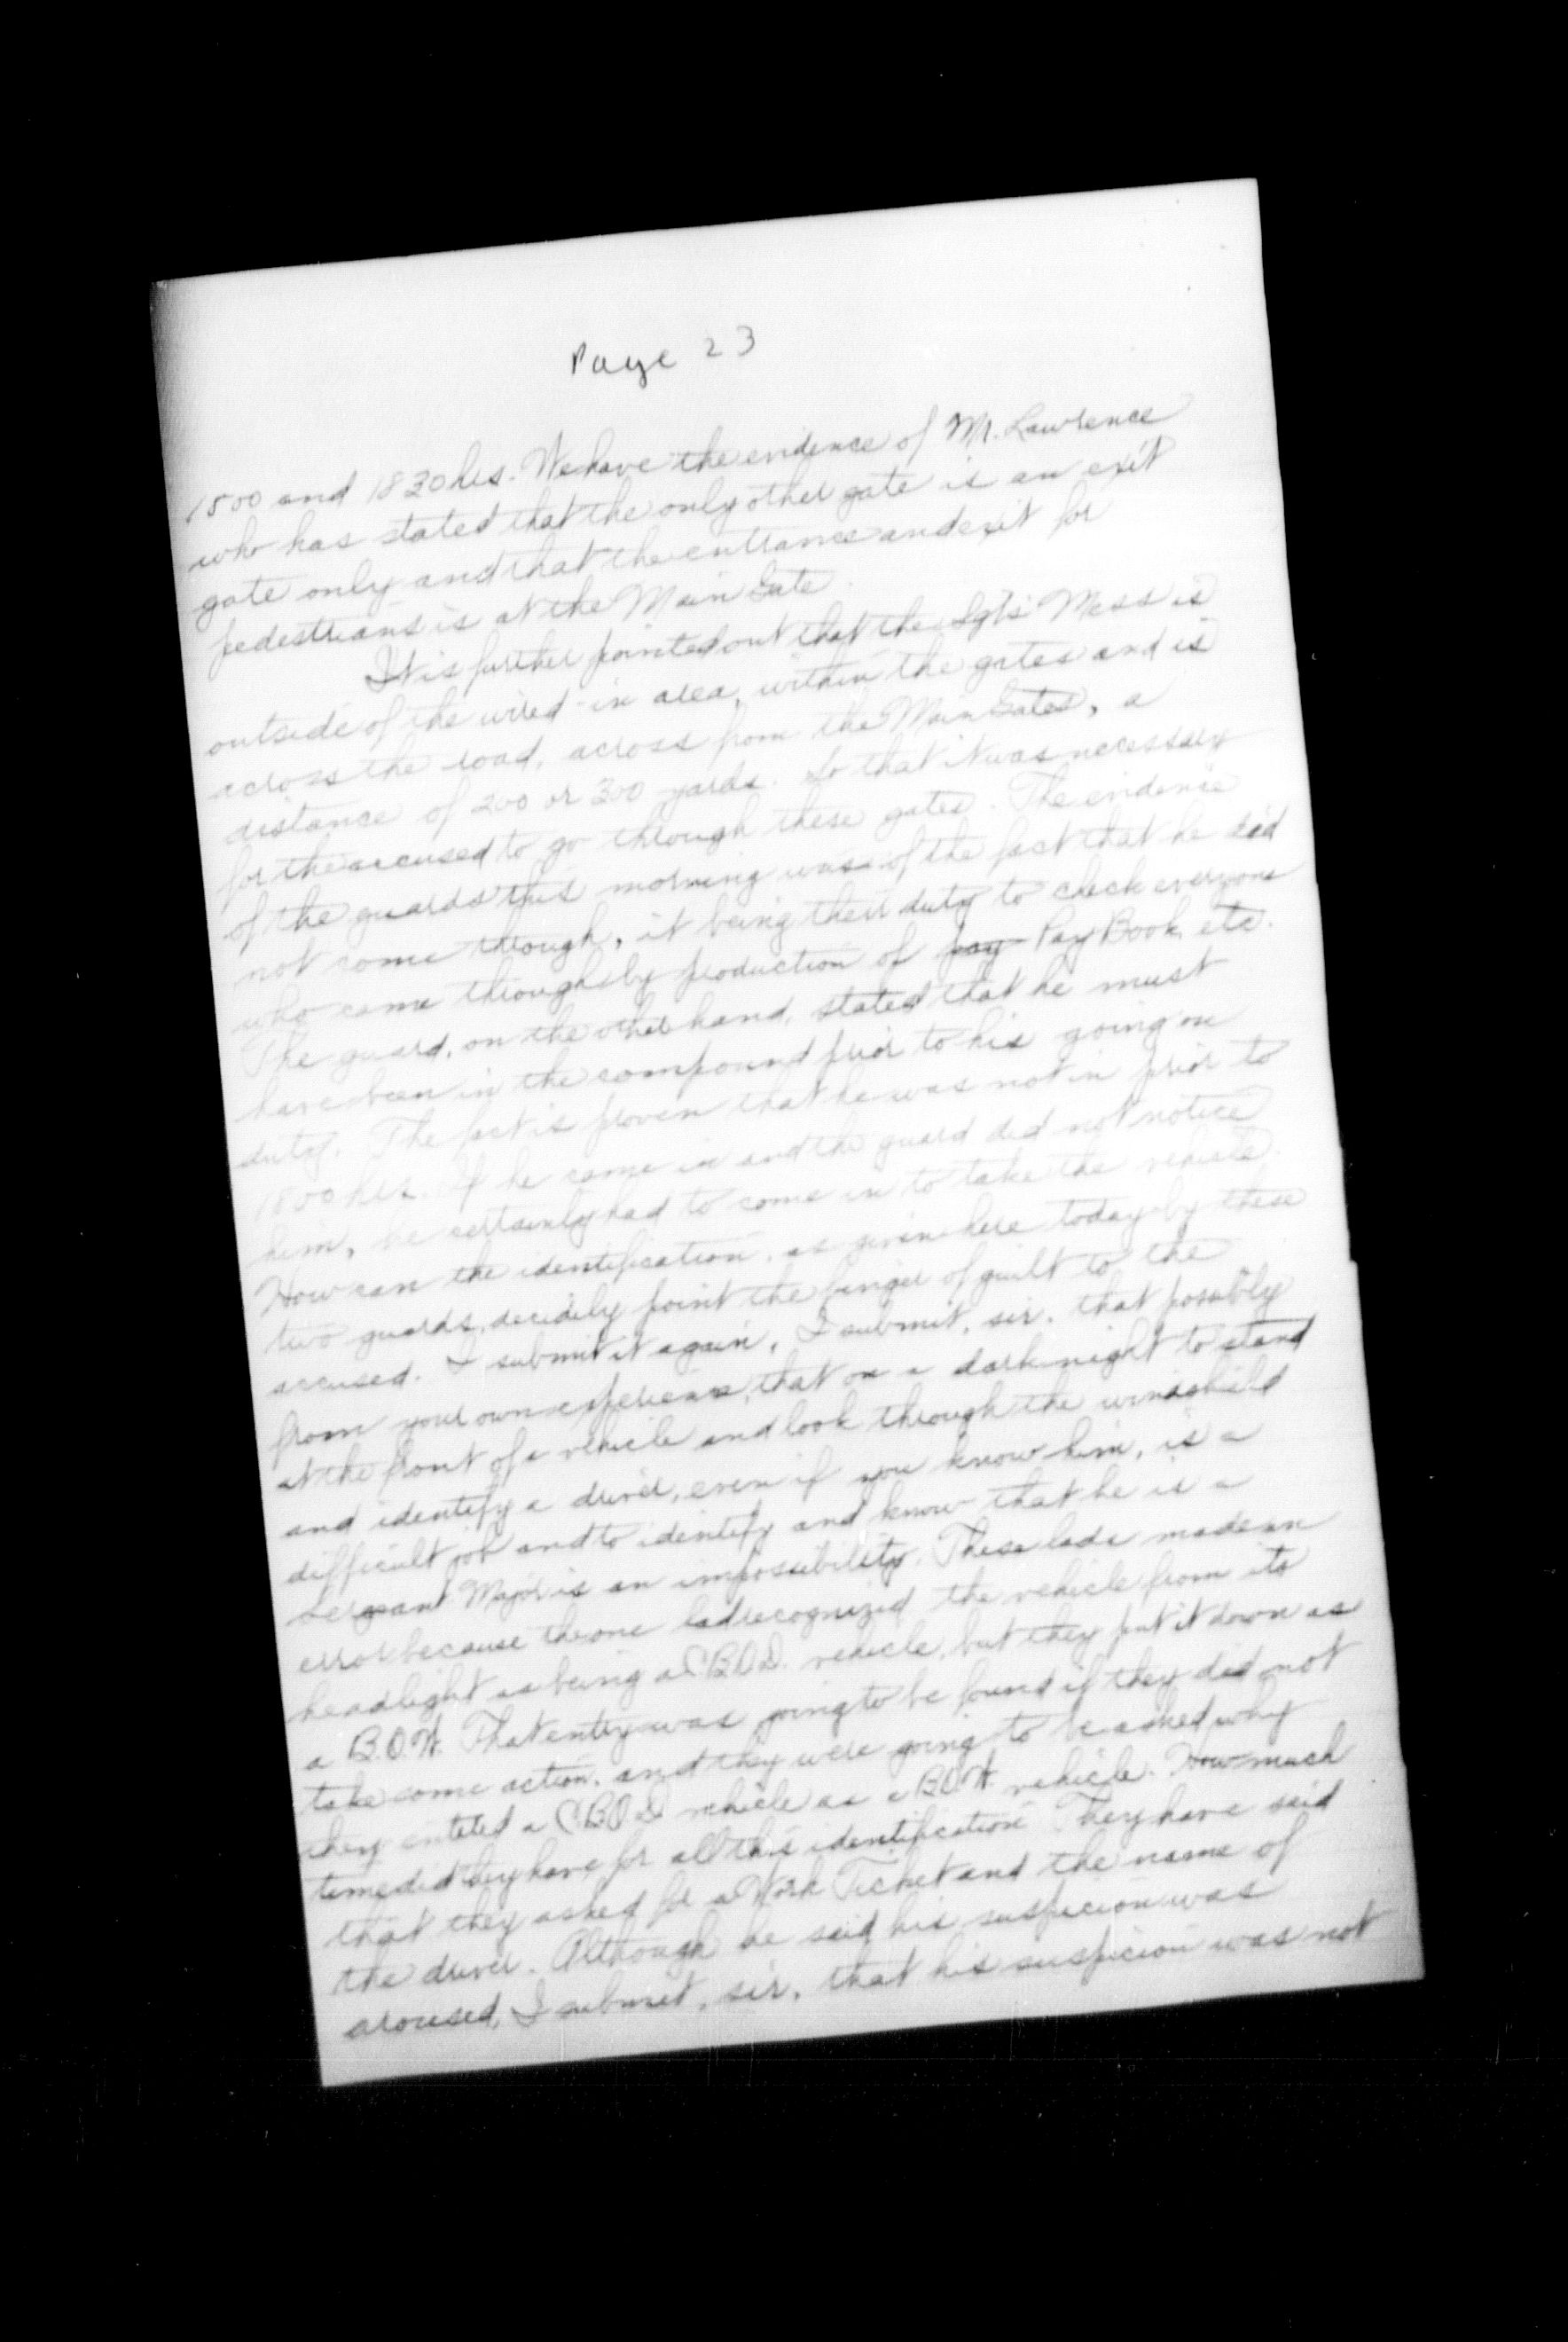 Page 23
1800 and 1830 hrs. We have the evidence of Mr. Lawrence
who has stated that the only other gate is an exit
gate only and that the entrance and exit for
pedestrians is at the Main Gate.
It is further pointed out that the Sgts' Mess is
outside of the wired-in area, within the gates and is
across the road, across from the Main Gates, a
distance of 200 or 300 yards. So that it was necessary
for the accused to go through these gates. The evidence
of the guards this morning was of the fact that he did
not come through, it being their duty to check everyone
who came through by production of pay Pay Book, etc.
The guard, on the other hand, stated that he must
have been in the compound prior to his going on
duty. The fact is proven that he was not in prior to
1800 hrs. If he came in and the guard did not notice
him, he certainly had to come in to take the vehicle.
How can the identification, as given here today by these
two guards, decidely point the finger of guilt to the
accused. I submit it again, I submit, sir, that possibly
from your own experience, that on a dark night to stand
at the front of a vehicle and look through the windshield
and identify a driver, even if you know him, is a
difficult job and to identify and know that he is a
Sergeant Major is an impossibility. These lads made an
error because the one lad recognized the vehicle from its
headlight as being a C.B.O.D. vehicle, but they put it down as
a B.O.W. That entry was going to be found if they did not
take some action, and they were going to be asked why
they entered a C.B.O.D. vehicle as a B.O.W. vehicle. How much
time did they have for all this identification. They have said
that they asked for a Work Ticket and the name of
the driver. Although he said his suspicion was
aroused, I submit, sir, that his suspicion was not